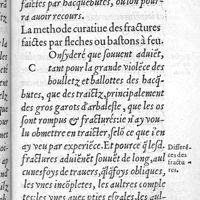 faictes par hacquebutes, ou lon pour-
ra auoir recours.
La methode curatiue des fractures
faictes par fleches ou bastons à feu.
COnsyderé que souuent aduiẽt,
tant pour la grande violẽce des
boulletz et ballottes des hacq-
butes, que des traictz, principalement
des gros garots d'arbaleste, que les os
sont rompus & fracturés: ie n'ay vou-
lu obmettre en traicter, selõ ce que i'en
ay veu par experiẽce. Et pource q̃ lesd.
fractures aduiẽnent souuẽt de long, au-
cunesfoys de trauers, q̃lq̃foys obliques,
les vnes incõpletes, les autres comple-
Differé-
ces des
fractu
res.